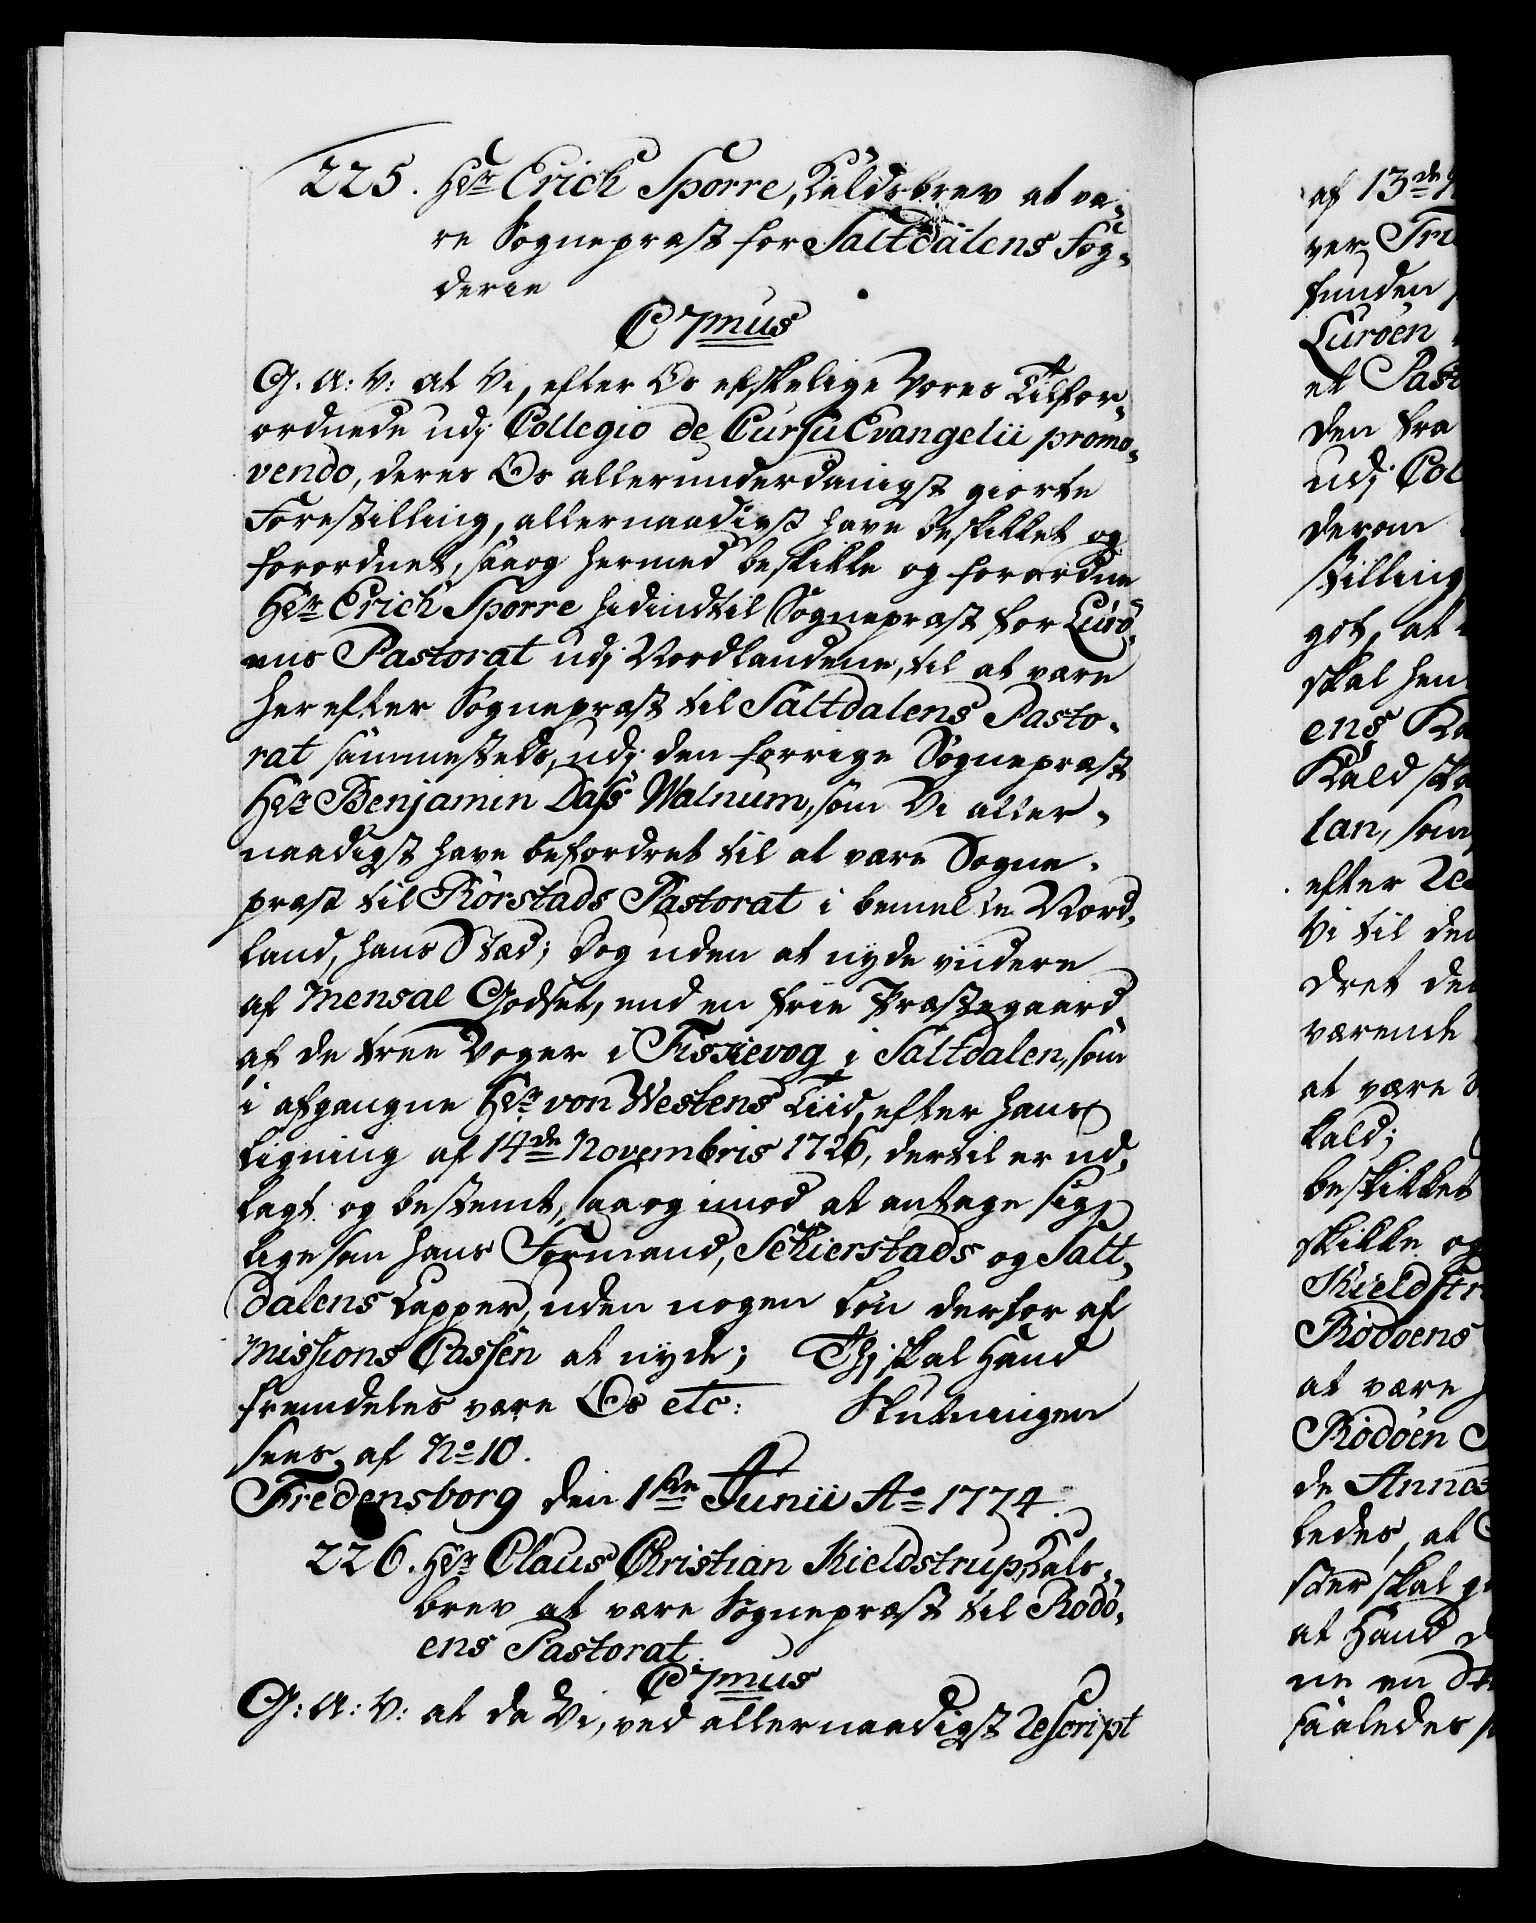 225. Hdr Erich Sporre, Kaldsbrev at væ-
re Sognepræst for Saltdalens Fog-
derie
C 7mus
G. A: V: at Vi, efter Os elskelige Vores Tilfor-
ordnede udj Collegio de Cursu Evangelii promo-
vendo, deres Os allerunderdanigst giorte
Forestilling, allernaadigst have beskikket og
forordnet, saaog hermed beskikke og forordne
Hdr Erich Sporre hidindtil Sognepræst for Lurö-
ens Pastorat udj Nordlandene, til at være
herefter Sognepræst til Saltdalens Pasto-
rat sammesteds, udj den forrige Sognepræst
Hdr Benjamin Dass Walnum, som Vi aller-
naadigst have befordret til at være Sogne-
præst til Rörstads Pastorat i bemelte Nord-
land, hans Stæd; dog uden at nyde viidere
af Mensal Godset, end en frie Præstegaard
af de tree Voger i Fiskevog i Saltdalen, som
i afgangne Hdr von Westens Tiid, efter hans
Ligning af 14de Novembris 1726, dertil er ud-
lagt og bestemt, saaog imod at antage sig
ligesom hans Formand, Schierstads og Salt-
dalens Lapper, uden nogen Løn derfor af
Missions Cassen at nyde; Thj skal Hand
fremdeles være Os etc: Slutningen
sees af No 10.
Fredensborg den 1ste Junii Ao 1774.
226. Hdr Claus Christian Kieldstrup, Kalds-
brev at være Sognepræst til Rödö-
ens Pastorat.
C 7mus
G: A: V: at da Vi, ved allernaadigst Rescript
af 13de
ver
funden
Luröen
et Past
den fra
udj Col
derom
stilling
got, at
skal hen
ens Ka
Kald ska
lan, som
efter
Vi til den
dret den
værende
at være
kald;
beskikket
skikke og
Kieldstr
Rödöens
at være
Rödöen
de Annos
ledes, at
ster skal
at Hand
ne en
saaledes